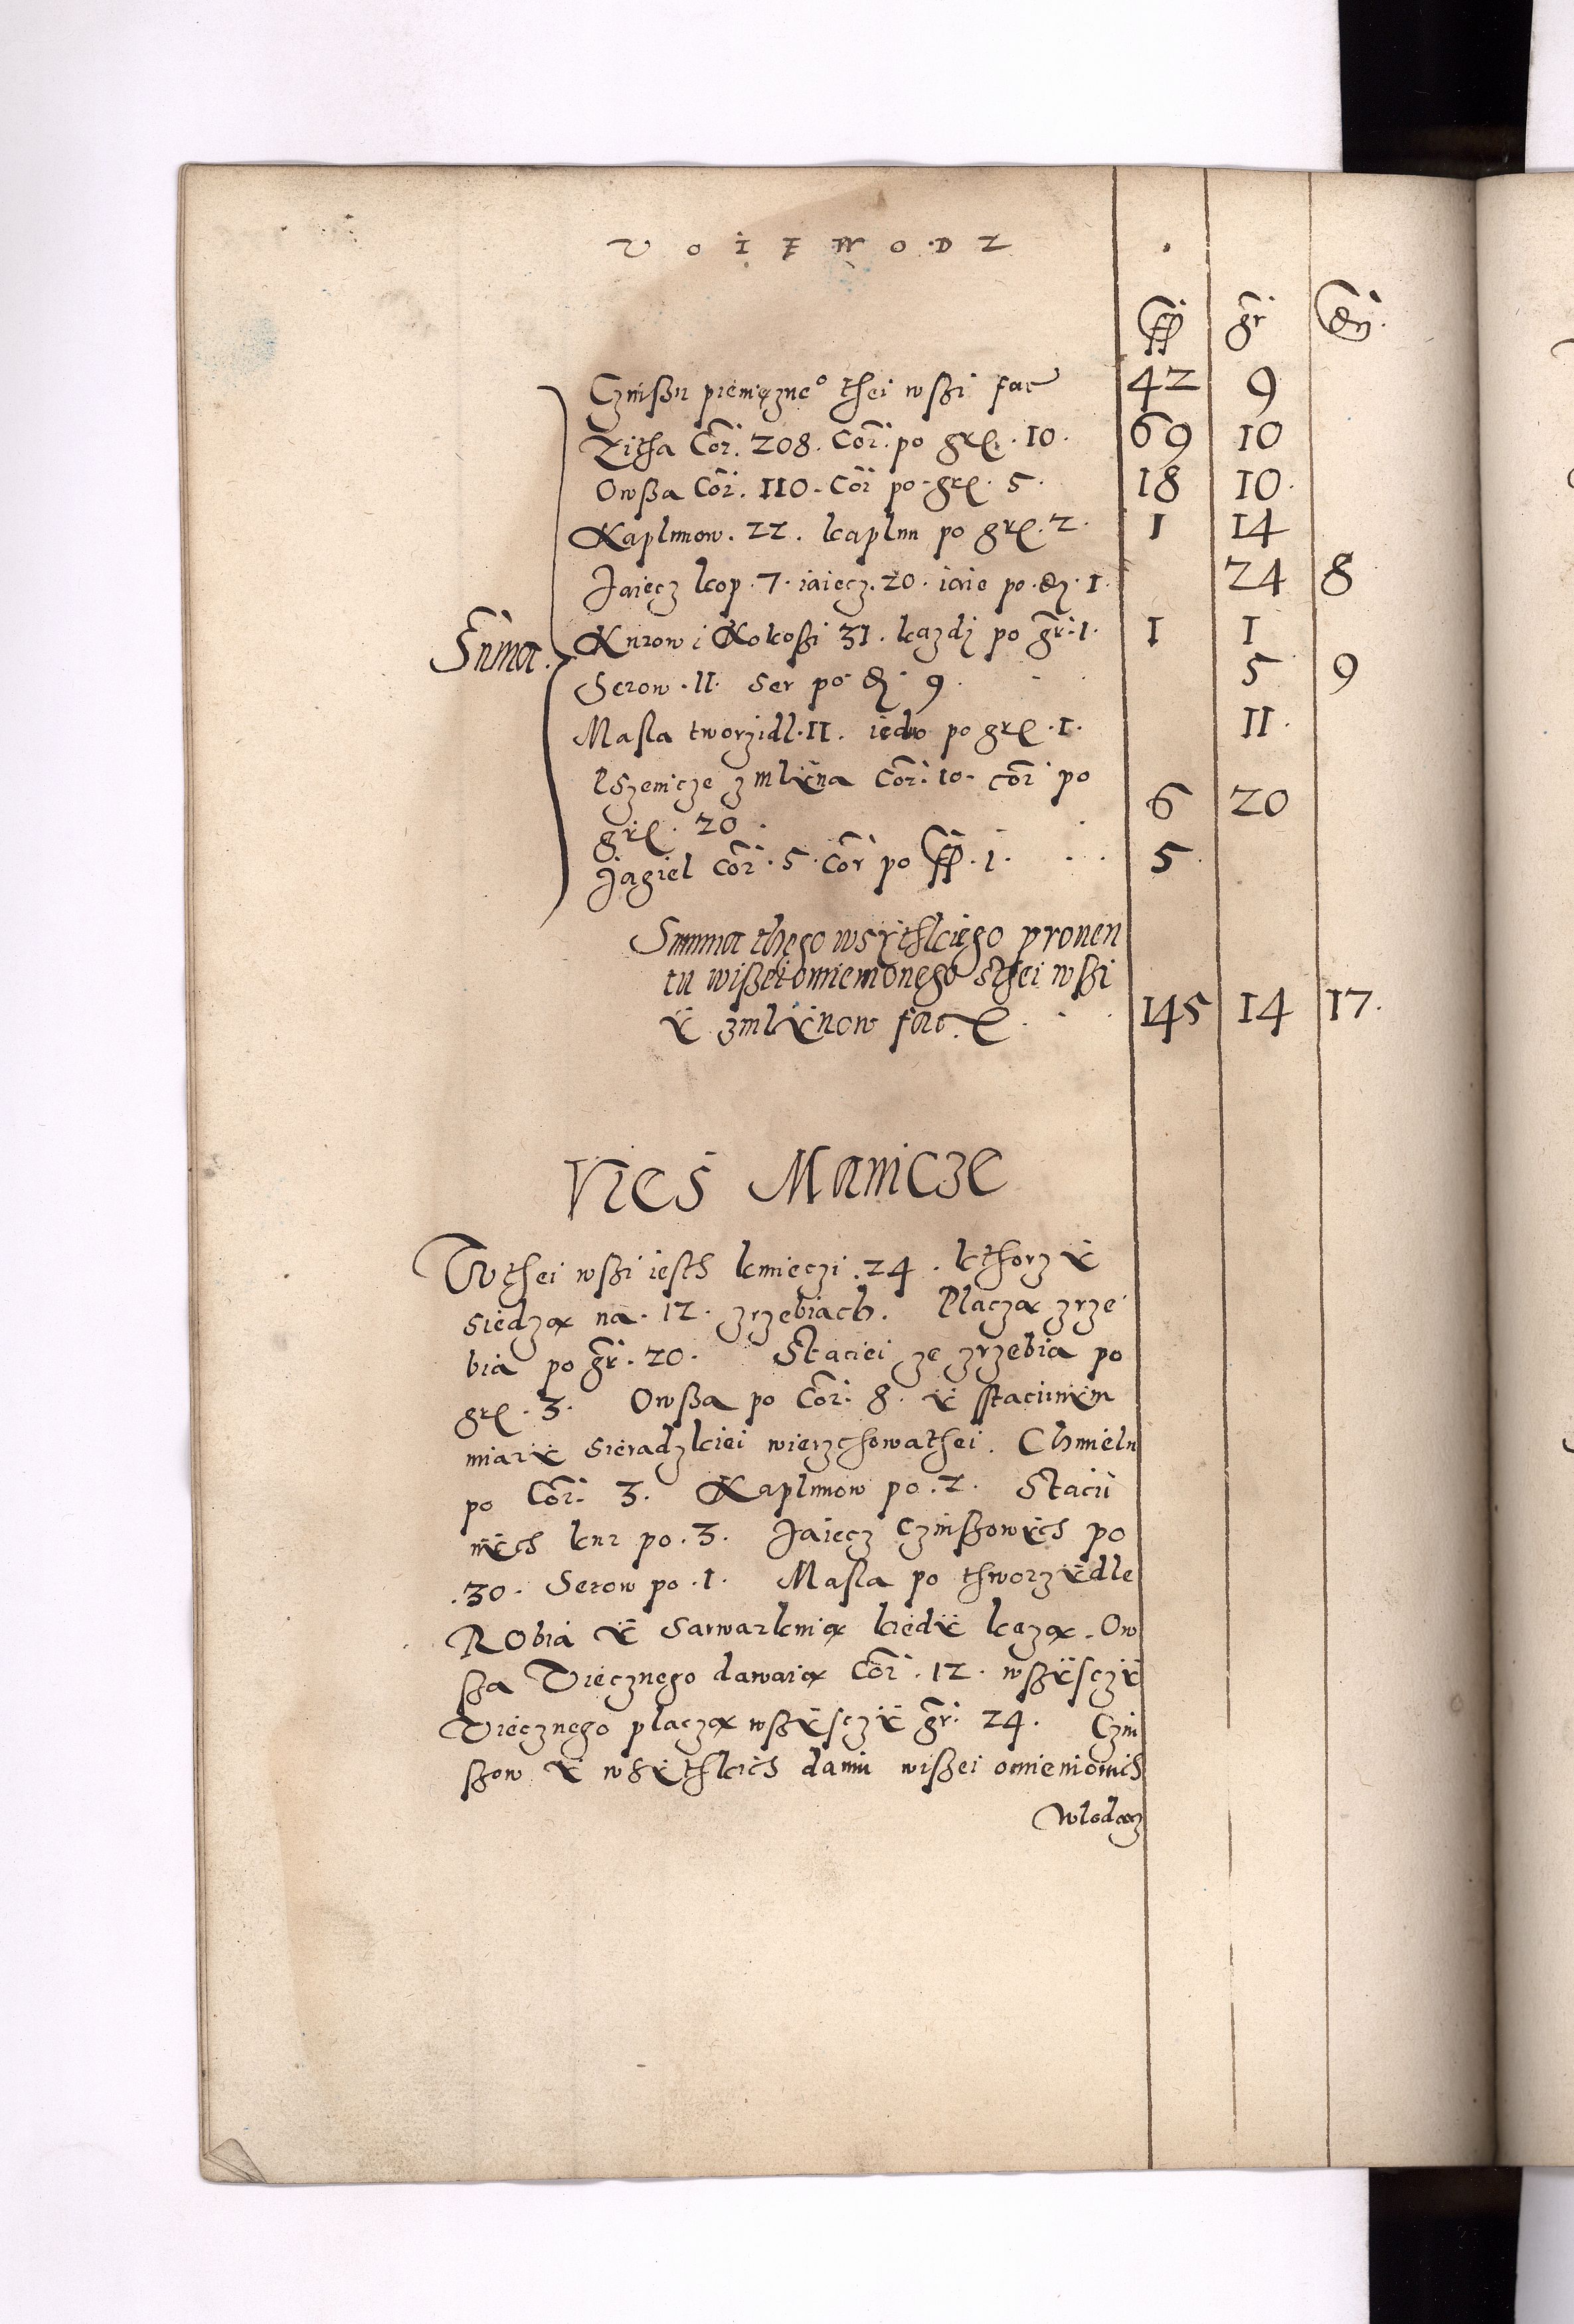 VOIEWODZ
ff gr den.
Czinßu pienięzne° thei wßi fac 42 9
Zitha Cor. 208. Cor. po gr. 10. 69 10
Owßa Cor. 110. Cor po gr. 5. 18 10.
Kaplunow. 22. kaplun po gr. 2. 1 14
Jaiecz kop. 7. iaiecz. 20. iaie po. d. 1. 24 8
Kurow i Kokoßi 31. kazdy po gr. 1. 1 1
Suma.
Serow. 11. Ser po d. 9. 5 9
Masla tworzidl. 11. iedno po gr. 1. 11.
Pszenicze z mlÿna Cor. 10. cor po
gr. 20. 6 20
Jagiel Cor. 5. Cor po ff. 1. 5
Summa thego wsÿthkiego proven
tu wißei omienionego Sthei wßi
ÿ zmlÿnow fac. 145 14 17.
Vies Manicze
W thei wßi iesth kmieczi. 24. kthorzÿ
siedzą na. 12. zrzebiach. Placzą zrze
bia po gr. 20. Staciei ze zrzebia po
gr. 3. Owßa po Cor. 8. ÿ stacinÿm
miarÿ Sieradzkiei wierzchowathei. Chmielu
po Cor. 3. Kaplunow po. 2. Stacii
nÿch kur po. 3. Jaiecz Czinßowÿch po
.30. Serow po. 1. Masla po thworzÿdle
Robią ÿ Sarwarkuią kiedÿ kążą. Ow
ßa Viecznego dawaią Cor. 12. wßÿsczÿ
Viecznego placzą wßÿsczÿ gr. 24. Czin
ßow ÿ wßÿthkich danin wißei omienionich
Wlodarz